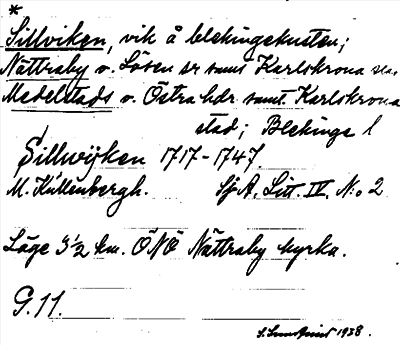 *
Sillviken, vik å blekingekusten;
Nättraby o. Lösen sr samt Karlskrona stad
Medelstads o. Östra hdr samt Karlskrona
stad; Blekinge l
Sillwijken 1717-1747
M. Küllenbergh. SjA. Litt. IV. N:o 2
Läge 3 1/2 km. ÖNÖ Nättraby kyrka.
G.11.
1938